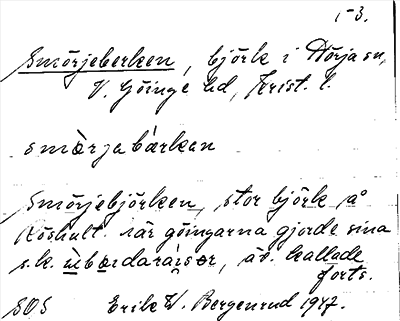 1-3.
Smörjeberken, björk i Nörja sn,
V. Göinge hd, Krist. l.
smörjabårkan
Smörjebjörken, stor björk på
Röshult när göingarna gjorde sina
s.k. ùbœdaráisər, äv. kallade
forts.
SOS Erik W. Bergenrud 1947.